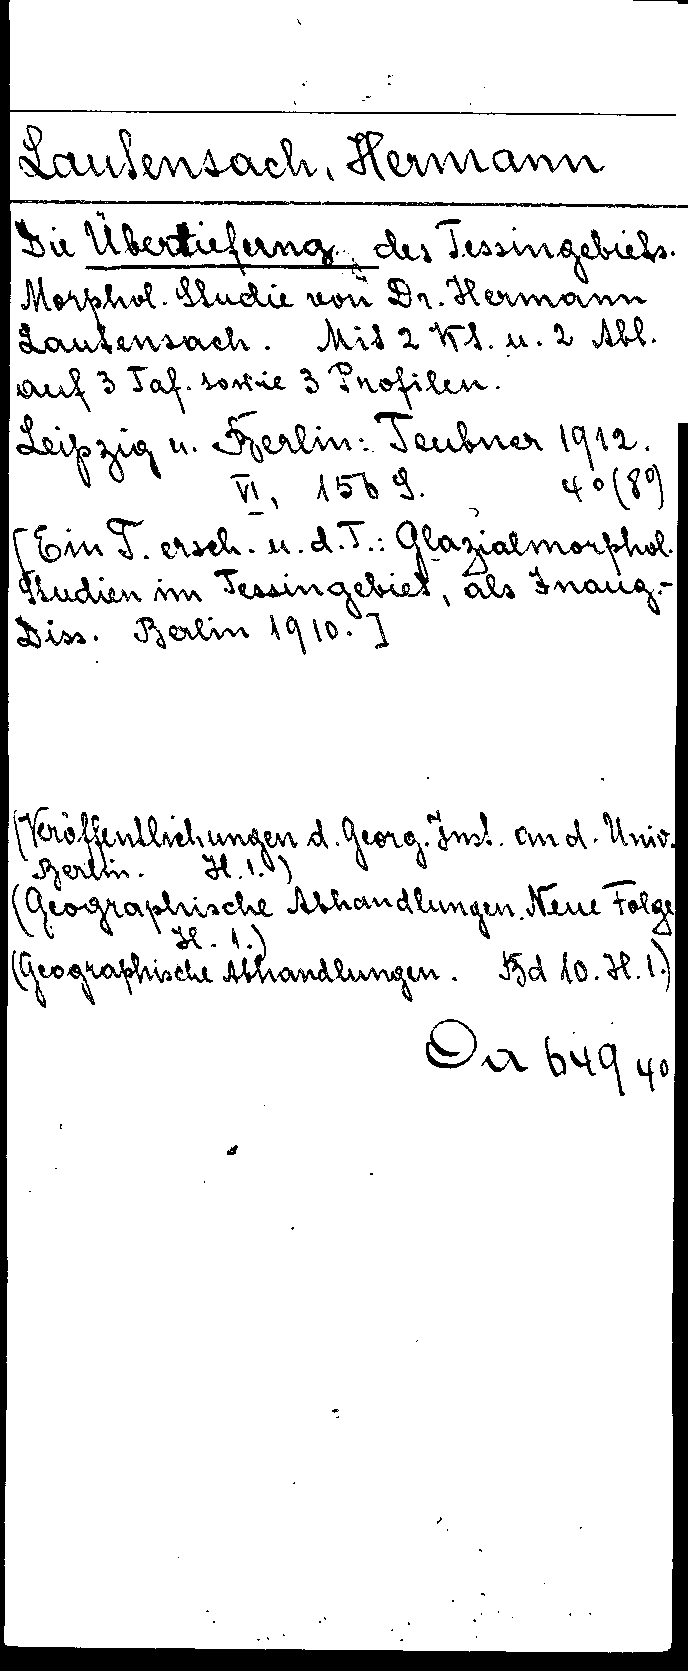 Lautensach, Hermann
Die Übertiefung des Tessingebiets.
Morphol. Studie von Dr. Hermann
Lautensach. Mit 2 Kt. u. 2 Abb.
auf 3 Taf. sowie 3 Profilen.
Leipzig u. Berlin: Teubner 1912.
VI, 156 S. 4°(8°)
[Ein T. ersch. u. d. T.: Glazialmorphol.
Studien im Tessingebiet, als Inaug.-
Diss. Berlin 1910.]
(Veröffentlichungen d. Georg. Inst. an d. Univ.
Berlin. H. 1.)
(Geographische Abhandlungen. Neue Folge
H. 1.)
(Geographische Abhandlungen. Bd 10. H. 1.)
649 4°